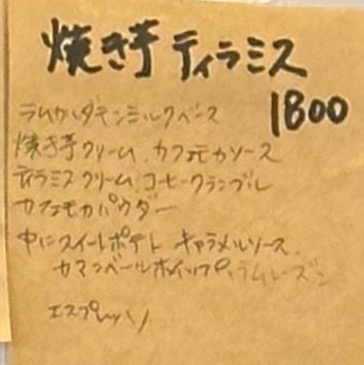 焼き芋ティラミス
1800
ミルクベース
焼き芋クリーム、カフェモカソース
ティラミスクリーム、コーヒークランブル
カフェモカパウダー
中にスイートポテト キャラメルソース、
カマンベールホイップ、ラムレーズン
エスプレッソ